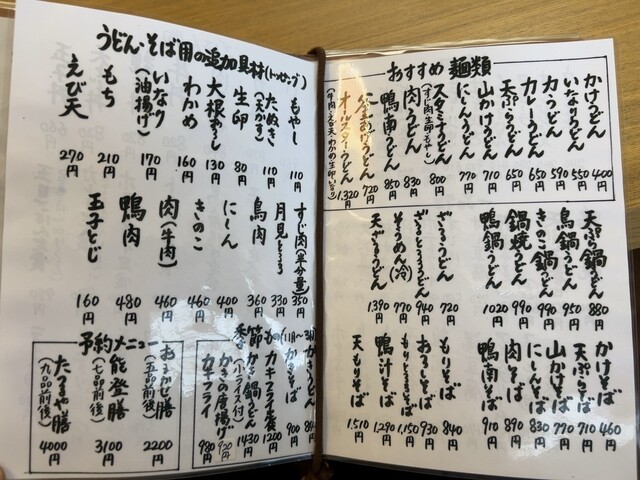 おすすめ 麺類
かけうどん 400円
いなりうどん 550円
力うどん 590円
カレーうどん 650円
天ぷらうどん 650円
山かけうどん 710円
にしんうどん 770円
スタミナうどん 800円
(すじ肉・生卵・もやし)
肉うどん 830円
鴨南うどん 850円
あげうどん 720円
オールスターうどん 1,320円
(牛肉・えび天・わかめ・生卵・いなり)
天ぷら鍋うどん 880円
鳥鍋うどん 950円
きのこ鍋うどん 990円
鍋焼うどん 990円
鴨鍋うどん 1020円
ざるうどん 720円
ざるとろろうどん 940円
そうめん(冷) 770円
天ざるうどん 1.390円
かけそば 460円
天ぷらそば 710円
山かけそば 770円
にしんそば 830円
肉そば 890円
鴨南そば 910円
もりそば 840円
おろしそば 930円
もりとろろそば 1,150円
鴨汁そば 1,290円
天もりそば 1,510円
うどん・そば用の追加具材(トッピング)
もやし 110円
たぬき(天かす) 110円
生卵 80円
大根おろし 130円
わかめ 160円
いなり(油揚げ) 170円
もち 210円
えび天 270円
すじ肉(半分量) 350円
月見とろろ 330円
鳥肉 360円
にしん 400円
きのこ 460円
肉(牛肉) 460円
鴨肉 480円
玉子とじ 160円
季節もの(11月〜3月)
かきうどん
かきそば 900円
カキフライ定食 1200円
かき鍋うどん(小ライス付) 1430円
かきの唐揚げ 920円
カキフライ 980円
予約メニュー
おまかせ膳(五品前後) 2200円
能登膳(七品前後) 3100円
たるや膳(九品前後) 4000円